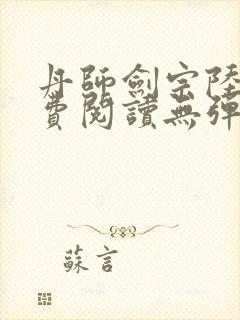 丹師劍宗陸
費閱讀無彈
蘇言